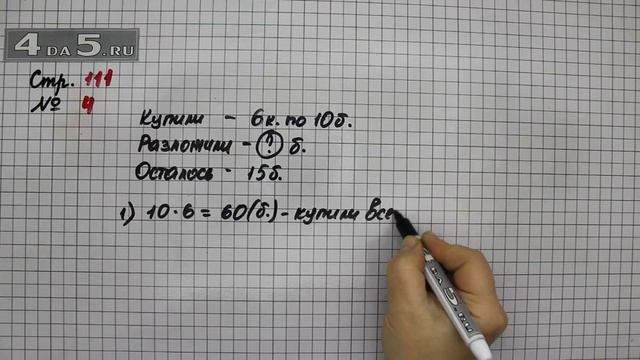 4 DA 5.RU
Стр. 111
№ 4
Купили - 6к. по 10б.
Разложили - ? б.
Осталось - 15б.
1) 10·6=60(б.)-купили все
DA 5.RU